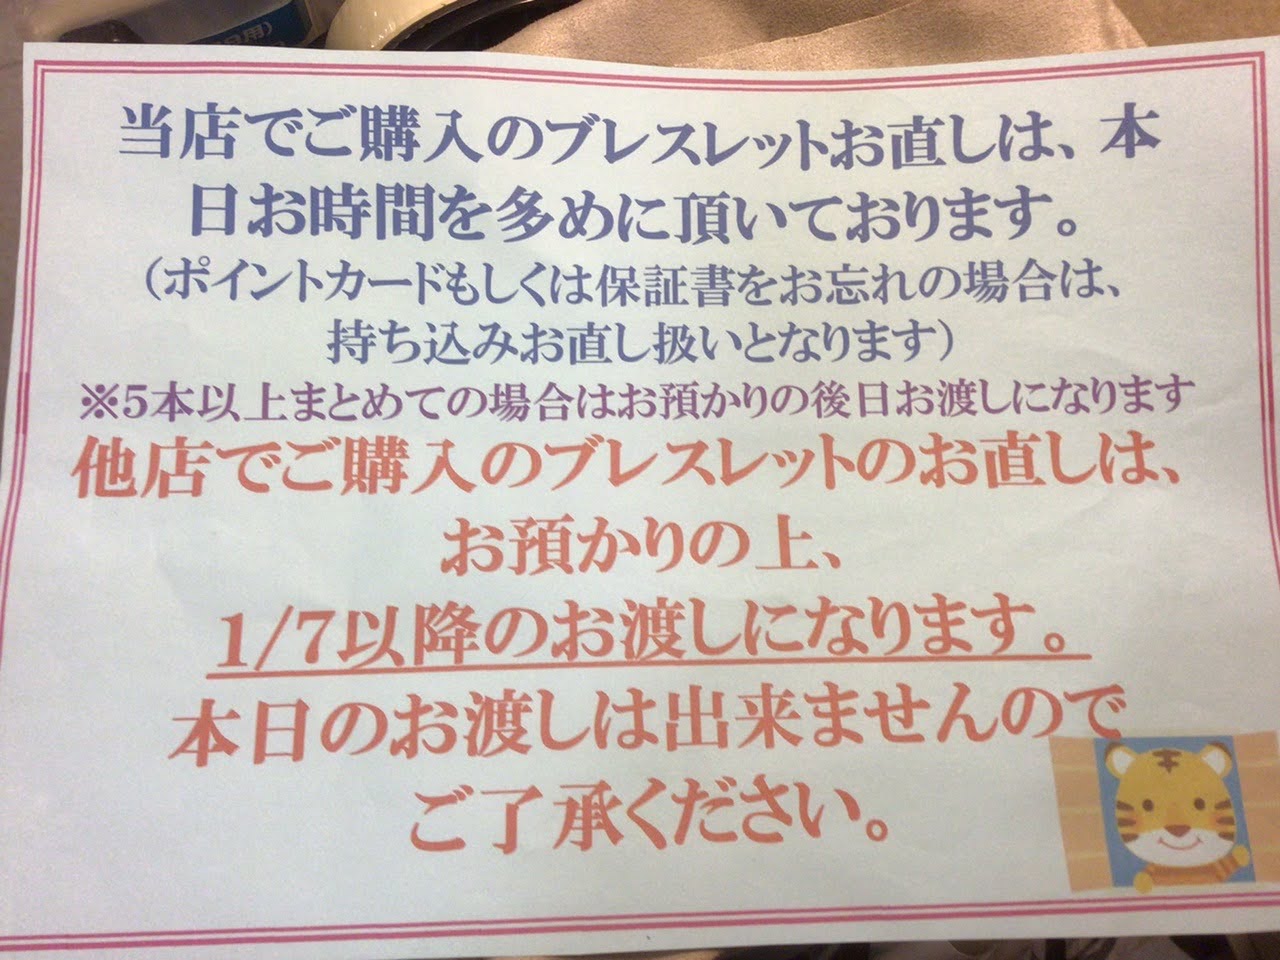 日用)
当店でご購入のブレスレットお直しは、本
日お時間を多めに頂いております。
（ポイントカードもしくは保証書をお忘れの場合は、
持ち込みお直し扱いとなります）
※5本以上まとめての場合はお預かりの後日お渡しになります
他店でご購入のブレスレットのお直しは、
お預かりの上、
1/7以降のお渡しになります。
本日のお渡しは出来ませんので
ご了承ください。